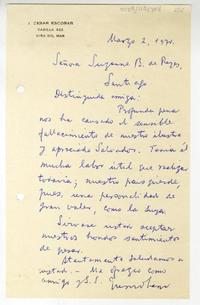 J. CESAR ESCOBAR
CASILLA 662
VIÑA DEL MAR
Marzo 2, 1971.
Señora Suzanne B. de Reyes,
Santiago
Distinguida amiga:
Profunda pena
nos ha causado el sensible
fallecimiento de nuestro ilustre
y apreciado Salvador. Tenía él
mucha labor útil que realizar
todavía; nuestro país pierde,
pues, una personalidad de
gran valer, como la suya.
Sírvase usted aceptar
nuestros hondos sentimientos
de pesar.
Atentamente saludamos a
usted. — Me ofrezco como
amigo y S.S.